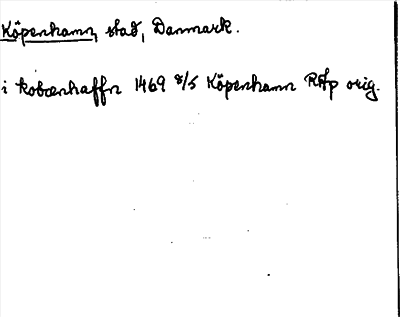 Köpenhamn, stad, Danmark.
i kobænhaffn 1469 8/5 Köpenhamn RAp orig.